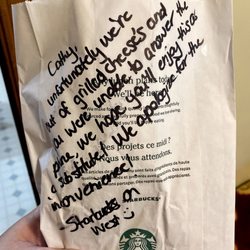 Cathy,
unfortunately we're
out of grilled cheese's and
you were unable to answer the
phone. We hope you'll enjoy this as
a substitute! We apologize for the
inconvenience!
- Starbucks on
West
lunch plans
We'll be here
Des projets ce midi?
Nous vous attendons.
STARBUCKS